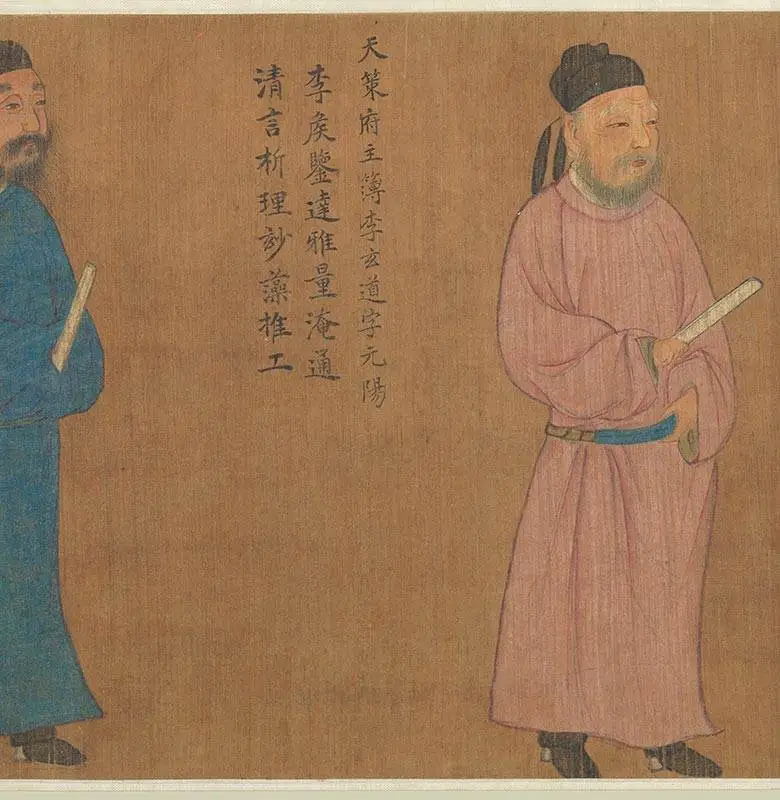 天策府主簿李玄道字元陽
李矦鑒達雅量淹通
清言析理玅藻推工